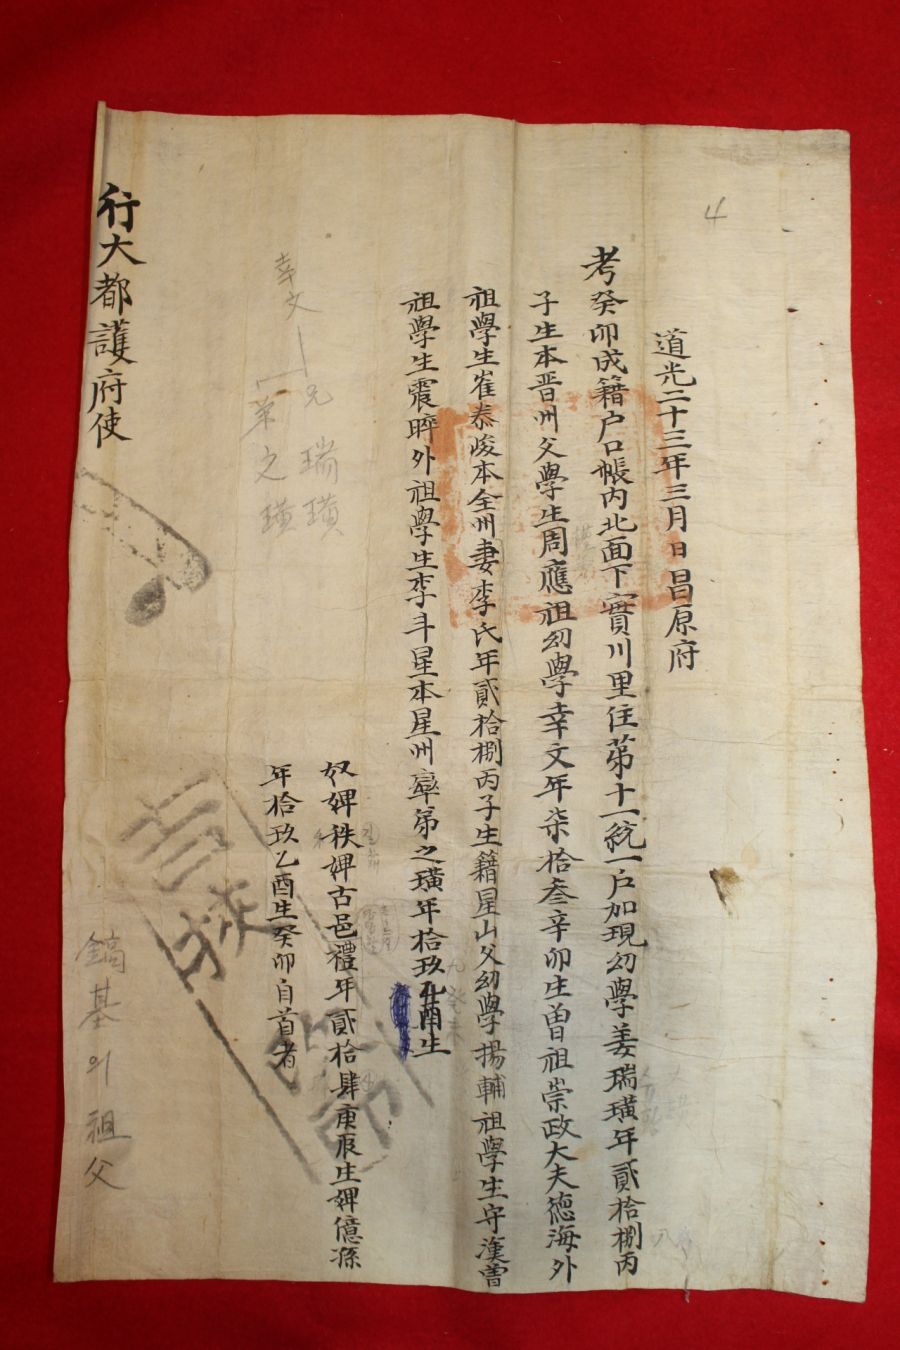 道光二十三年三月 日昌原府
考癸卯成籍户口帳內北面下實川里住第十一統一户加現幼學姜瑞璜年貳拾捌丙
子生本晋州父學生周應祖幼學幸文年柒拾叁辛卯生曽祖崇政大夫德海外
祖學生崔泰峻本全州妻李氏年貳拾捌丙子生籍星山父幼學揚輔祖學生守漢曽
祖學生震晬外祖學生李斗星本星州率弟之璜年拾玖乙酉生
奴婢秩婢古邑禮年貳拾肆庚辰生婢億孫
年拾玖乙酉生癸卯自首者
行大都護府使
4
幸文
兄 瑞璜
弟 之璜
鎬基의 祖父